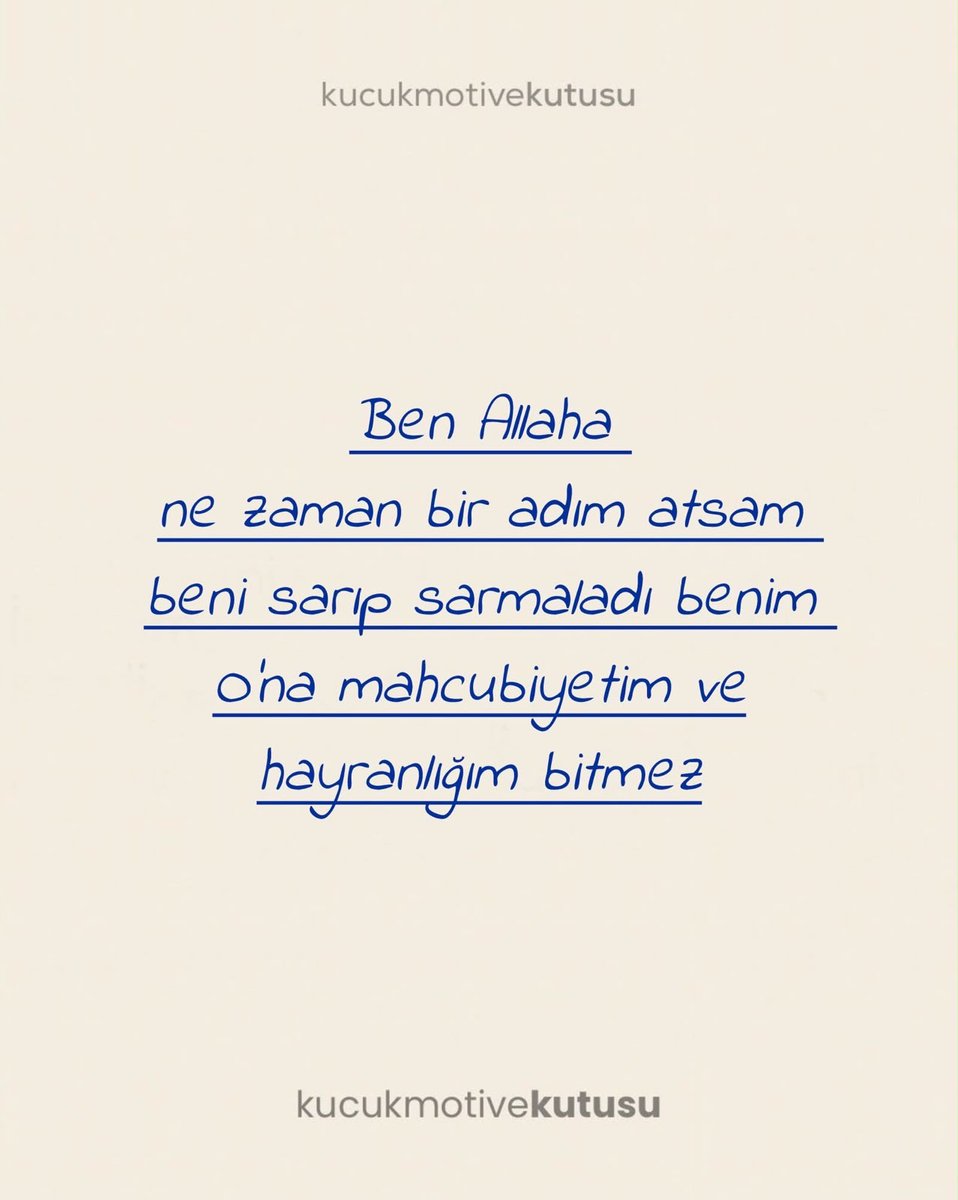 kucukmotivekutusu
Ben Allaha
ne zaman bir adım atsam
beni sarıp sarmaladı benim
o'na mahcubiyetim ve
hayranlığım bitmez
kucukmotivekutusu